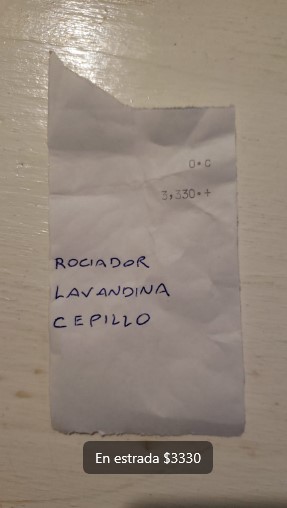 0•C
3,330•+
ROCIADOR
LAVANDINA
CEPILLO
En estrada $3330